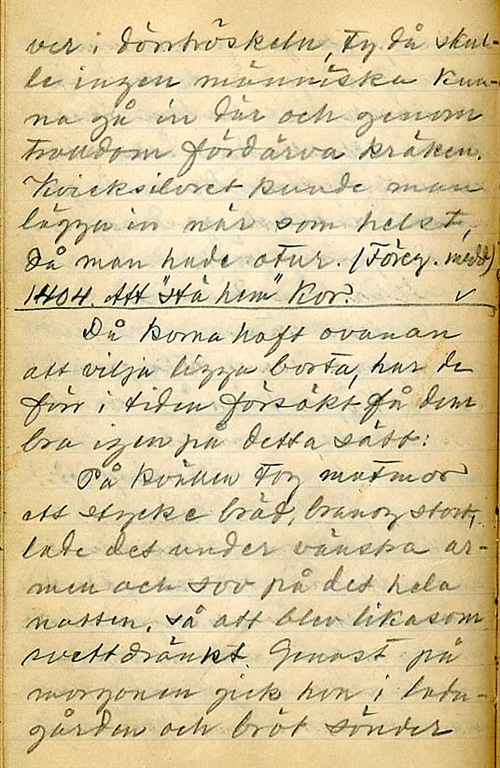 ver i dörrtröskeln, ty då skul-
le ingen människa kun-
na gå in där och genom
trolldom fördärva kräken.
Kvicksilvret kunde man
lägga in när som helst,
då man hade otur. (Föreg. medd)
1404. Att "stä hem" kor. ✓
Då korna haft ovanan
att vilja ligga borta, har de
förr i tiden försökt få dem
bra igen på detta sätt:
På kvällen tog matmor
ett stycke bröd, bra nog stort,
lade det under vänstra ar-
men och sov på det hela
natten, så att blev likasom
svettdränkt. Genast på
morgonen gick hon i ladu-
gården och bröt sönder